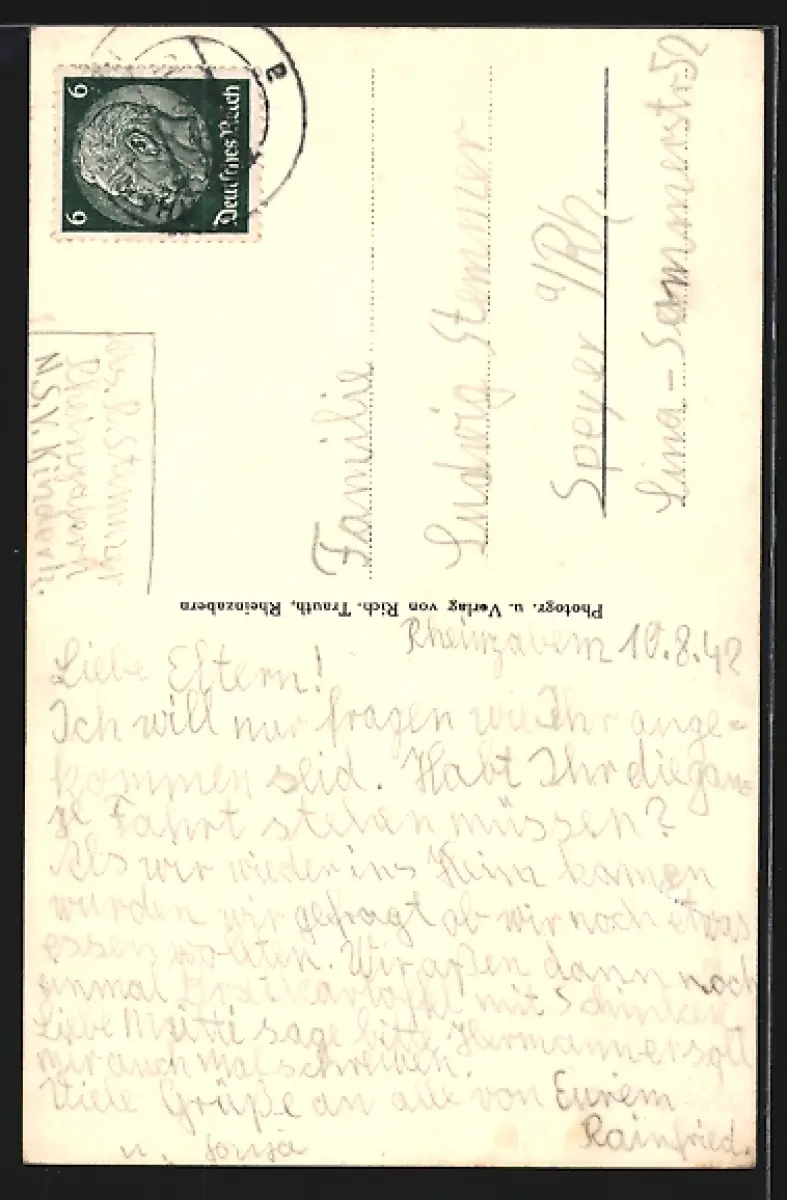 6
6
Deutsches Reich
N.S.V. Kinderh.
Familie
Ludwig Stemmer
Speyer a/Rh.
Lina-Sommerstr. 52
Photogr. u. Verlag von Rich. Trauth, Rheinzabern
Rheinzabern 10.8.42
Liebe Eltern!
Ich will nur fragen wie Ihr ange=
kommen seid. Habt Ihr die gan=
ze Fahrt stehen müssen?
Als wir wieder ins Heim kamen
wurden wir gefragt ob wir noch etwas
essen wollten. Wir aßen dann noch
einmal Bratkartoffel mit Schinken.
Liebe Mutti sage bitte Hermann er soll
mir auch mal schreiben.
Viele Grüße an alle von Eurem
Rainfried.
u.